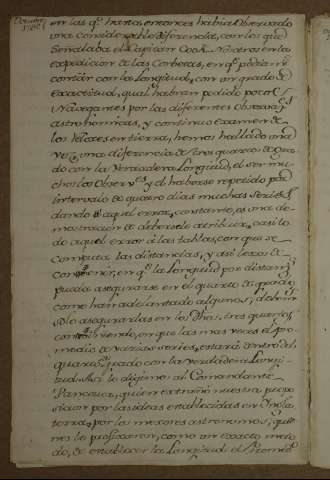 en las q.e hasta entonces habia observado
una considerable diferencia, con las que
señalaba el Capitan Cook. Nosotros en la
expedicion de las Corbetas, en q.e podiam
contar con la Longitud, con un grado de
exactitud, qual habran podido pocos
Navegantes por las diferentes observas
astronómicas, y continuo examen de
los Reloxes en tierra, hemos hallado una
vez, una diferencia de tres quartos de gra
do con la verdadera Longitud, el ser mu
chos los Observ.es y el haberse repetido por
intervalo de quatro dias muchas series,
dando aquel error constante, es una de
mostracion de deberse atribuir, casi to
do aquel error a las tablas, con que se
computa las distancias, y asi lexos de
convenir, en q.e la Longitud por distan.s
pueda asegurarse en el quarto de grado,
como han adelantado algunos, deberia
solo asegurarlas en los dhos. tres quartos,
conviniendo, en que las mas veces el pro
medio de varias series, estará dentro del
quarto de grado con la verdadera Longi
tud. Asi lo digimo al Comandante
Vancouver, quien extrañó nuestra propo
sicion por las ideas establecidas en Ingla
terra, por los mejores astronomos, que
nos le profesaron, como un exacto meto
do, de establecer la Longitud el